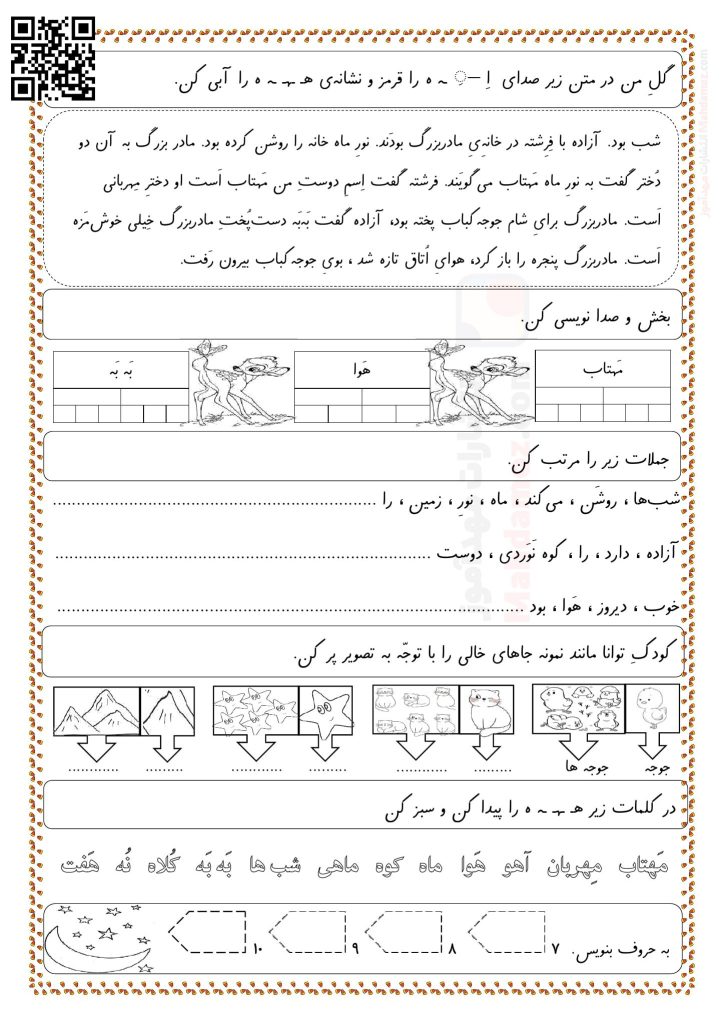 گلِ من در متن زیر صدای اِ ـِ ـه ه را قرمز و نشانه‌ی هـ ـهـ ـه ه را آبی کن.
شب بود. آزاده با فِرِشته در خانه‌یِ مادربزرگ بودَند. نورِ ماه خانه را روشَن کرده بود. مادر بزرگ به آن دو
دُختر گفت به نورِ ماه مَهتاب می‌گویَند. فرشته گفت اِسمِ دوستِ من مَهتاب اَست او دخترِ مِهربانی
اَست. مادربزرگ برایِ شام جوجه‌کباب پخته بود، آزاده گفت بَه‌بَه دست‌پُختِ مادربزرگ خِیلی خوش‌مَزه
اَست. مادربزرگ پنجره را باز کرد، هوایِ اُتاق تازه شد ، بویِ جوجه‌کباب بیرون رَفت.
بخش و صدا نویسی کن.
مَهتاب هَوا بَه بَه
جملات زیر را مرتب کن.
شب‌ها ، روشَن ، می‌کند ، ماه ، نورِ ، زمین ، را ....................
آزاده ، دارد ، را ، کوه نَوَردی ، دوست ....................
خوب ، دیروز ، هَوا ، بود ....................
کودکِ توانا مانند نمونه جاهای خالی را با توجّه به تصویر پر کن.
جوجه جوجه ها ......... ............ ......... ............ ......... ............
در کلمات زیر هـ ـهـ ـه ه را پیدا کن و سبز کن
مَهتاب مِهربان آهو هَوا ماه کوه ماهی شب‌ها بَه‌بَه کُلاه نُه هَفت
به حروف بنویس. ۷ ۸ ۹ ۱۰
Mahdamaz.com